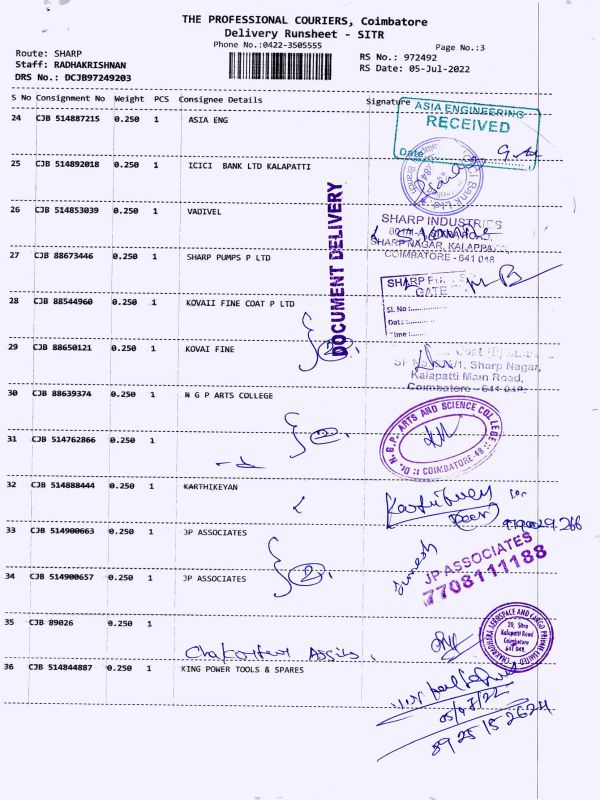 THE PROFESSIONAL COURIERS, Coimbatore
Delivery Runsheet - SITR
Phone No.:0422-3505555
Page No.:3
Route: SHARP
RS No.: 972492
Staff: RADHAKRISHNAN
RS Date: 05-Jul-2022
DRS No.: DCJB97249203
S No Consignment No Weight PCS Consignee Details Signature
24 CJB 514887215 0.250 1 ASIA ENG
ASIA ENGINEERING
RECEIVED
Date:
25 CJB 514892018 0.250 1 ICICI BANK LTD KALAPATTI
26 CJB 514853039 0.250 1 VADIVEL
SHARP INDUSTRIES
SHARP NAGAR, KALAPPATTI,
COIMBATORE - 641 048
DOCUMENT DELIVERY
27 CJB 88673446 0.250 1 SHARP PUMPS P LTD
SHARP
GATE
SL No :
Date :
Time :
28 CJB 88544960 0.250 1 KOVAII FINE COAT P LTD
2
29 CJB 88650121 0.250 1 KOVAI FINE
Sharp Nagar,
Kalapatti Main Road,
Coimbatore - 641 048.
30 CJB 88639374 0.250 1 N G P ARTS COLLEGE
Dr. N.G.P. ARTS AND SCIENCE COLLEGE
COIMBATORE-48
2
31 CJB 514762866 0.250 1
32 CJB 514888444 0.250 1 KARTHIKEYAN
33 CJB 514900663 0.250 1 JP ASSOCIATES
JP ASSOCIATES
7708111188
2
34 CJB 514900657 0.250 1 JP ASSOCIATES
35 CJB 89026 0.250 1
39, Sitra
Kalapatti Road
Coimbatore
641 048.
36 CJB 514844887 0.250 1 KING POWER TOOLS & SPARES
05/07/22